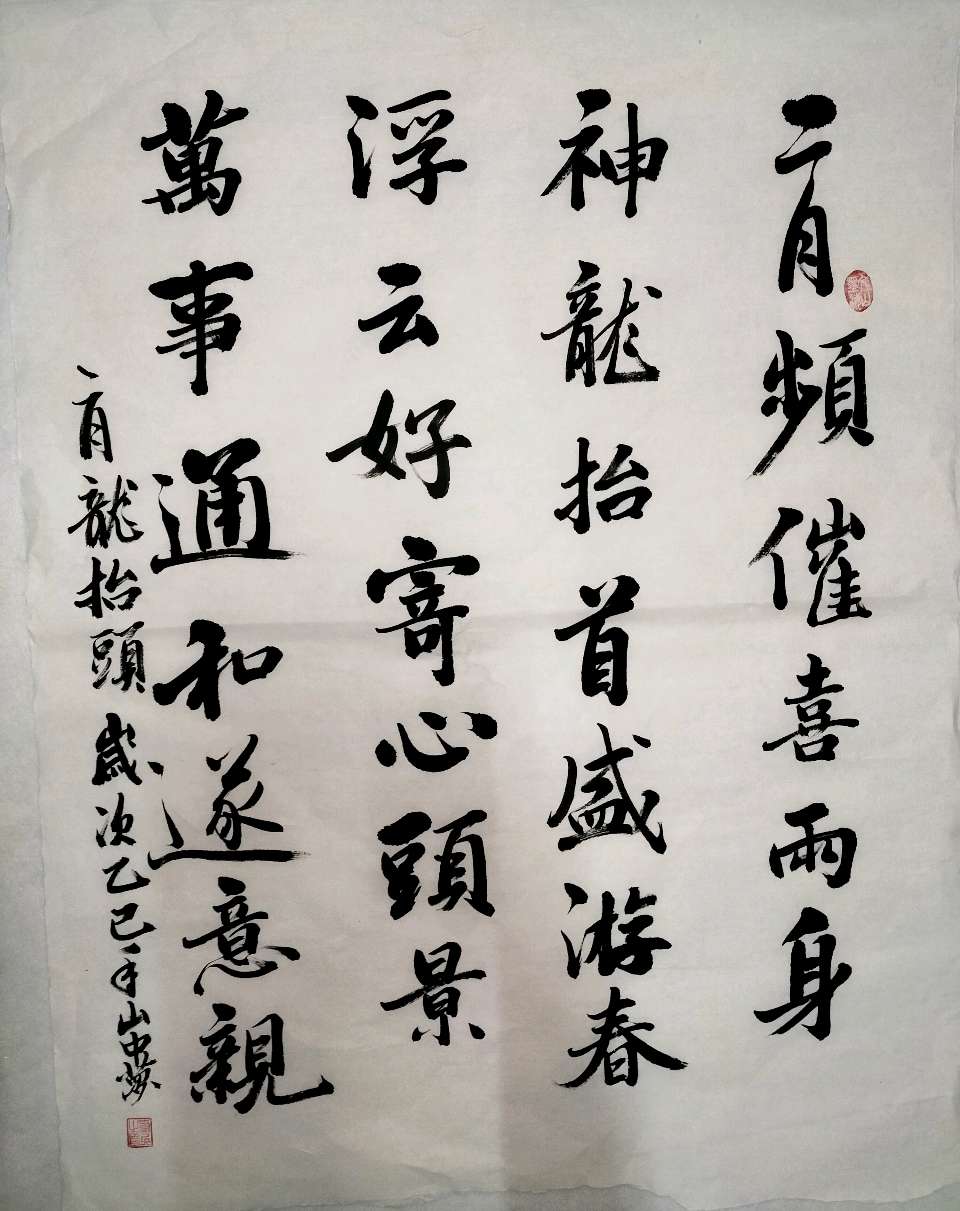 二月頻催喜雨身
神龍抬首盛游春
浮云好寄心頭景
萬事通和遂意親
二月龍抬頭歲次乙巳年山中